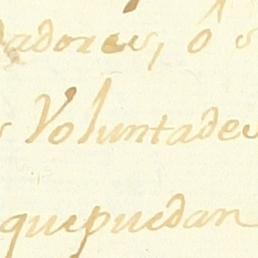 dadores, ó s
s Voluntades
que puedan